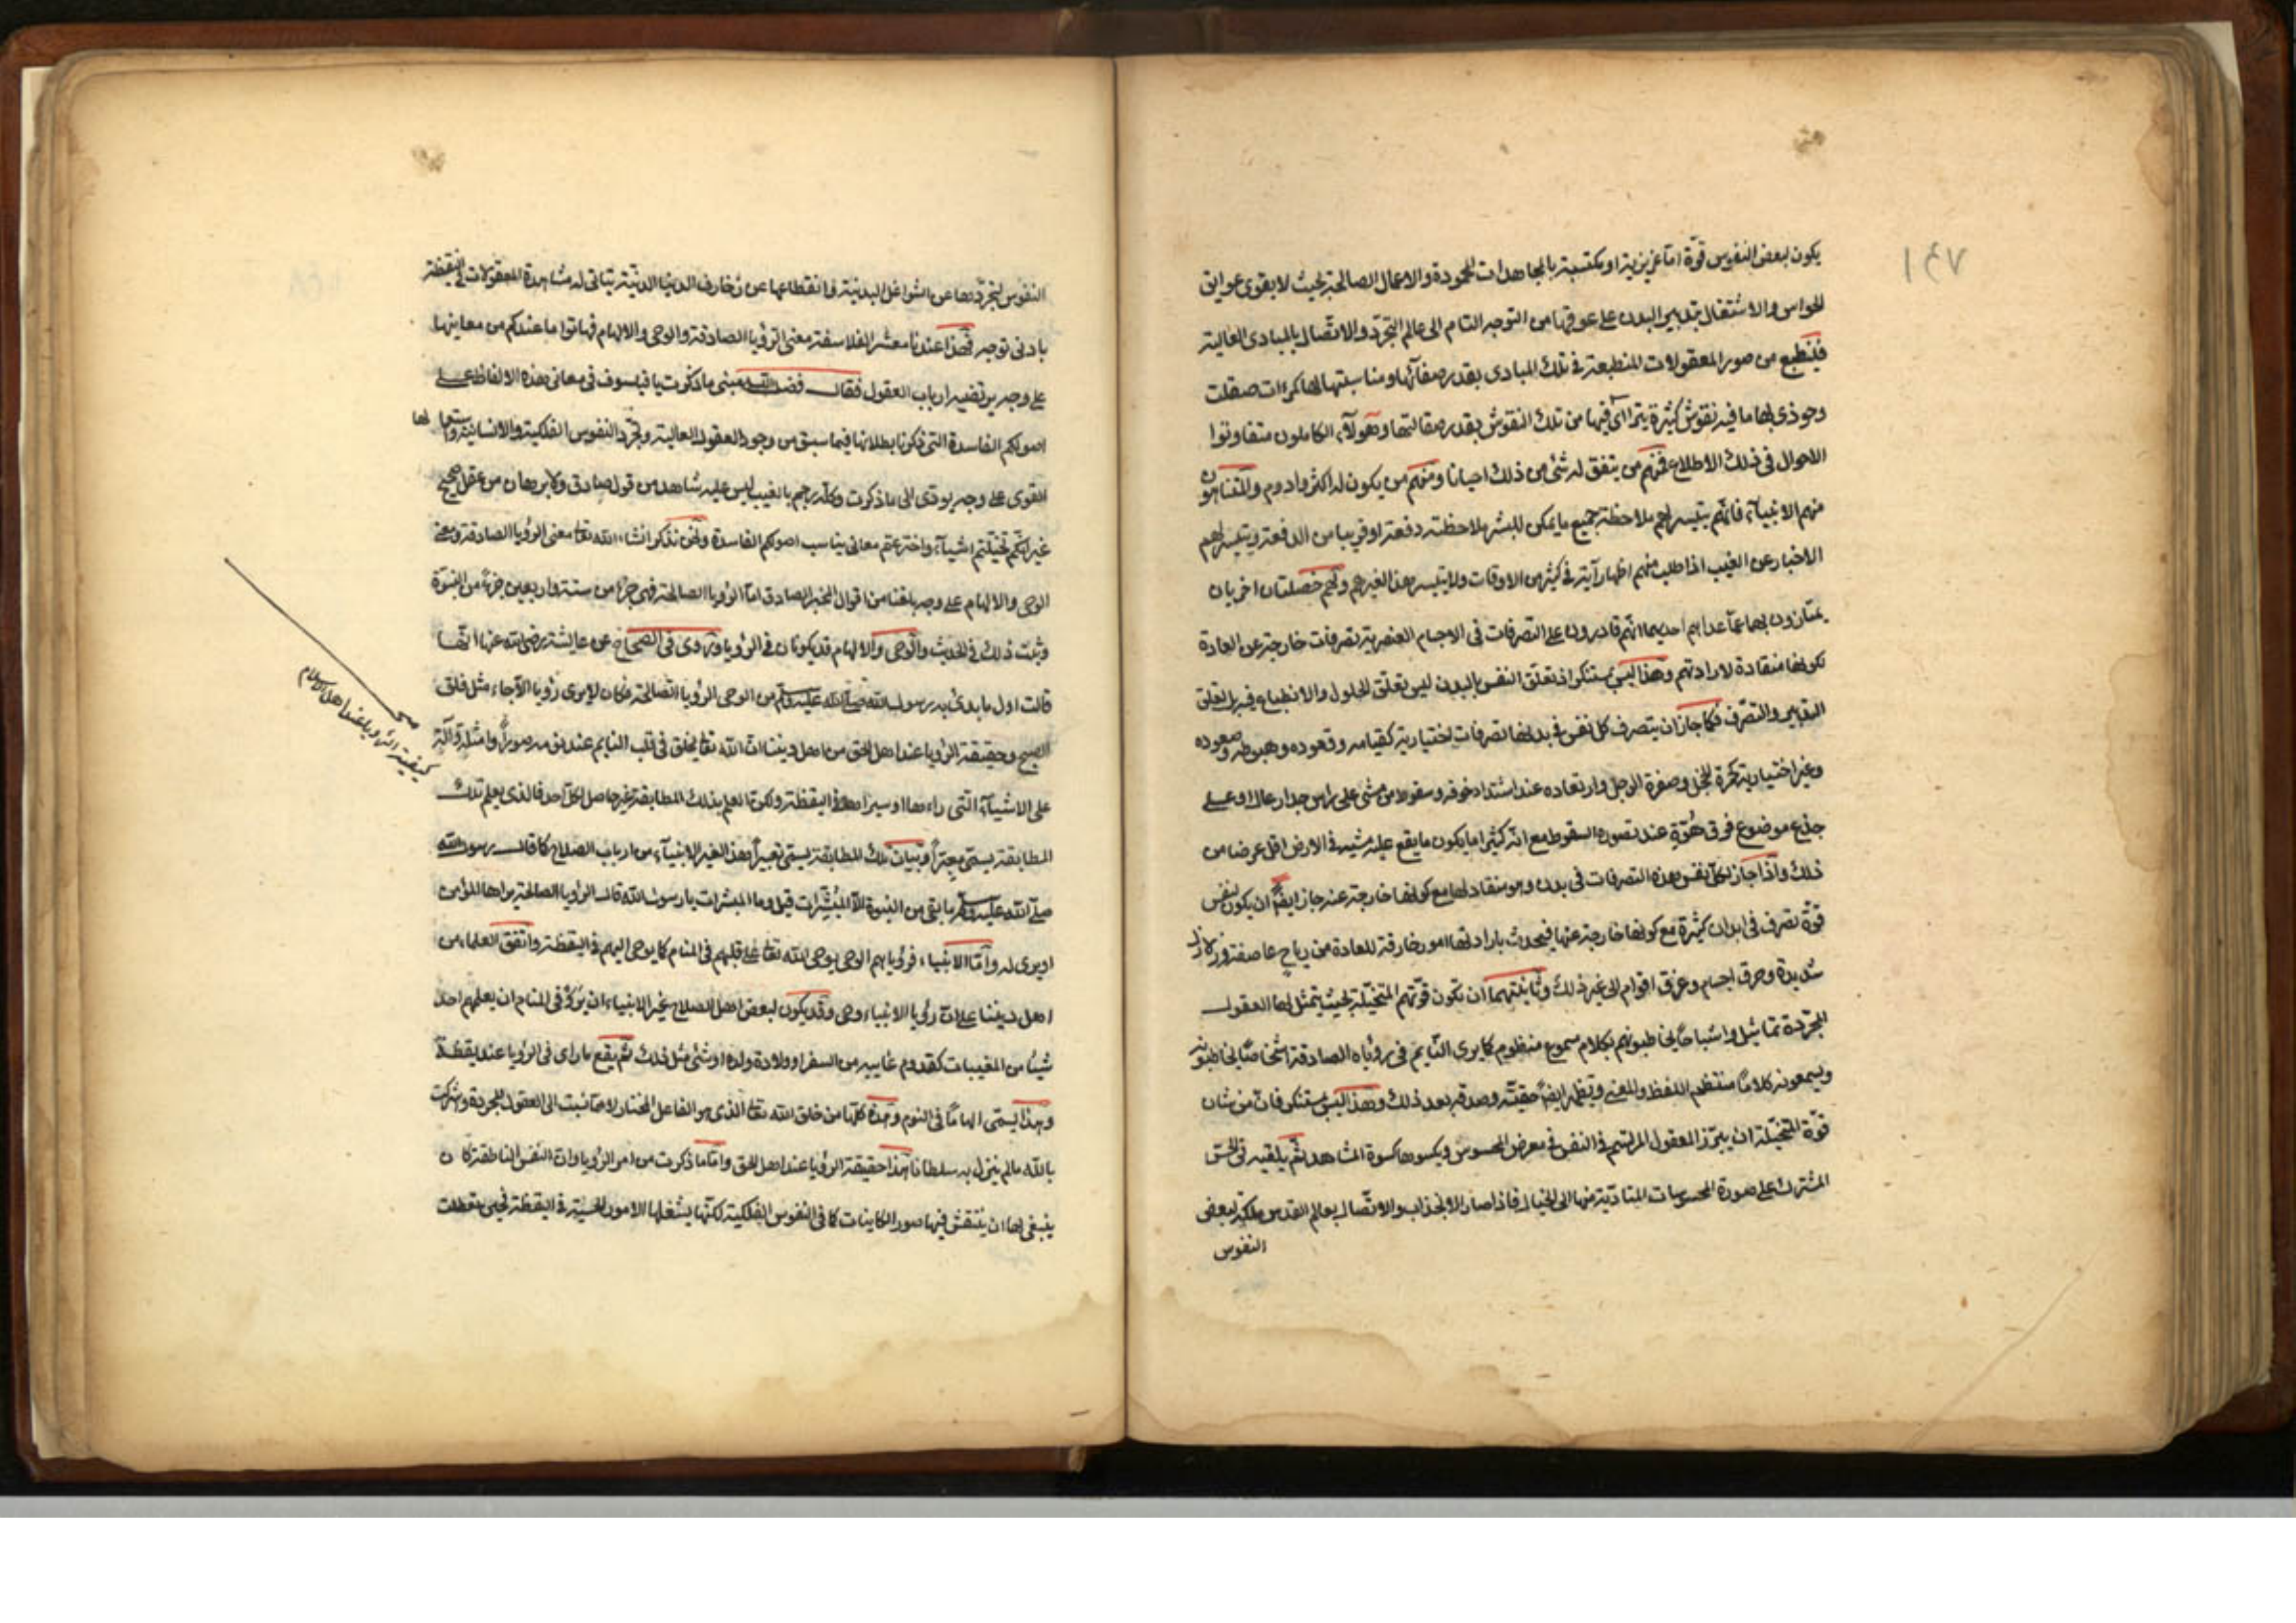 ١٤٧
يكون لبعض النفوس قوة اما غريزية او مكتسبة بالمجاهدات المحمودة والاعمال الصالحة بحيث لا يقوى عوايق
الحواس والاشتغال بتدبير البدن على عوقها من التوجه التام الى عالم التجرد والاتصال بالمبادى العالية
فينطبع من صور المعقولات المنطبعة فى تلك المبادى بقدر صفائها ومناسبتها لها كمرءات صقلت
وحوذى بها ما فيه نقوش كثيرة يتراآى فيها من تلك النقوش بقدر صقالتها وهولآء الكاملون متفاوتوا
الاحوال فى ذلك الاطلاع فمنهم من يتفق له شئ من ذلك احيانا ومنهم من يكون له اكثر وادوم والمتناهون
منهم الانبيآء فانهم يتيسر لهم ملاحظة جميع ما يمكن للبشر ملاحظته دفعة او قريبا من الدفعة ويتيسر لهم
الاخبار عن الغيب اذا طلب منهم اظهار آية فى كثير من الاوقات ولا يتيسر هذا لغيرهم ولهم خصلتان اخريان
يمتازون بهما عما عداهم احديهما انهم قادرون على التصرفات فى الاجسام العنصرية تصرفات خارجة عن العادة
لكونها منقادة لارادتهم وهذا ليس بمستنكر اذ تعلق النفس بالبدن ليس تعلق الحلول والانطباع فيه بل تعلق
التدبير والتصرف فكما جاز ان يتصرف كل نفس فى بدنها تصرفات اختيارية كقيامه وقعوده وهبوطه وصعوده
وغير اختيارية كحمرة الخجل وصفرة الوجل وارتعاده عند اشتداد خوفه وسقوط من مشى على راس جدار عال او على
جذع موضوع فوق هوة عند تصوره السقوط مع انه كثيرا ما يكون ما يقع عليه مشيه فى الارض اقل عرضا من
ذلك واذا جاز لكل نفس هذه التصرفات فى بدن وهو منقاد لها مع كونها خارجة عنه جاز ايضا ان يكون لنفس
قوة تصرف فى ابدان كثيرة مع كونها خارجة عنها فيحدث بارادتها امور خارقة للعادة من رياح عاصفة وزلازل
شديدة وحرق اجسام وغرق اقوام الى غير ذلك وثانيتهما ان تكون قوتهم المتخيلة بحيث يتمثل لها العقول
المجردة تماثيل واشباحا يخاطبونهم بكلام مسموع منظوم كما يرى النايم فى روياه الصادقة اشخاصا يخاطبونه
ويسمعونه كلاما منتظم اللفظ والمعنى ويظهر ايضا حقيته وصدقه بعد ذلك وهذا ليس بمستنكر فان من شان
قوة المتخيلة ان يبرز المعقول المرتسم فى النفس فى معرض المحسوس ويكسوها كسوة المشاهد ثم يلقيه فى الحس
المشترك على صورة المحسوسات المتادية منها الى الخيال فاذا صار الانجذاب والاتصال بعالم القدس ملكة لبعض
النفوس
النفوس لتجردها عن الشواغل البدنية وانقطاعها عن زخارف الدنيا الدنية يتاتى له مشاهدة المعقولات فى اليقظة
بادنى توجه فهذا عندنا معشر الفلاسفة معنى الرؤيا الصادقة والوحى والالهام فهاتوا ما عندكم من معانيها
على وجه يرتضيه ارباب العقول فقال فضل الله مبنى ما ذكرت يا فيلسوف فى معانى هذه الالفاظ على
اصولكم الفاسدة التى ذكرنا بطلانها فيما سبق من وجود العقول العالية وتجرد النفوس الفلكية والانسانية واستعمالها
القوى على وجه يودى الى ما ذكرت وكله رجم بالغيب ليس عليه شاهد من قول صادق ولا برهان من عقل صحيح
غير انكم تخيلتم اشيآء واخترعتم معانى يناسب اصولكم الفاسدة ونحن نذكر انشاء الله تعالى معنى الرؤيا الصادقة ومعنى
الوحى والالهام على وجه بلغنا من اقوال المخبر الصادق اما الرؤيا الصالحة فهى جزء من ستة واربعين جزءا من النبوة
وثبت ذلك فى الحديث والوحى والالهام قد يكونان فى الرؤيا وروى فى الصحاح عن عايشة رضى الله عنها انها
قالت اول ما بدئ به رسول الله صلى الله عليه وسلم من الوحى الرؤيا الصالحة فكان لا يرى رؤيا الا جاء مثل فلق
الصبح وحقيقة الرؤيا عند اهل الحق من اهل ديننا ان الله تعالى يخلق فى قلب النايم عند نومه صورا وامثلة دالة
على الاشيآء التى راءها او سيراها فى اليقظة ولكن العلم بذلك المطابقة غير حاصل لكل احد فالذى يعلم تلك
المطابقة يسمى معبرا وبيان تلك المطابقة يسمى تعبيرا وهذا لغير الانبيآء من ارباب الصلاح كما قال رسول الله
صلى الله عليه وسلم ما بقى من النبوة الا المبشرات قيل وما المبشرات يا رسول الله قال الرؤيا الصالحة يراها المؤمن
او يرى له واما الانبياء فرؤياهم الوحى يوحى الله تعالى على قلبهم فى المنام كما يوحى اليهم فى اليقظة واتفق العلماء من
اهل ديننا على ان رؤيا الانبياء وحى وقد يكون لبعض اهل الصلاح غير الانبياء ان يرى فى المنام ان يعلمهم احد
شيئا من المغيبات كقدوم غايبه من السفر او ولادة ولده او شئ مثل ذلك ثم يقع ما راى فى الرؤيا عند يقظته
وهذا يسمى الهاما فى النوم وهذه كلها من خلق الله تعالى الذى هو الفاعل المختار لا كما نسبت الى العقول المجردة وشركت
بالله ما لم ينزل به سلطانا هذا حقيقة الرؤيا عند اهل الحق واما ما ذكرت من امر الرؤيا وان النفس الناطقة كان
ينبغى لها ان ينتقش فيها صور الكاينات كما فى النفوس الفلكية لكنها يشغلها الامور الحسية فى اليقظة فحين تعطلت
كيفية الرؤيا عند اهل الاسلام